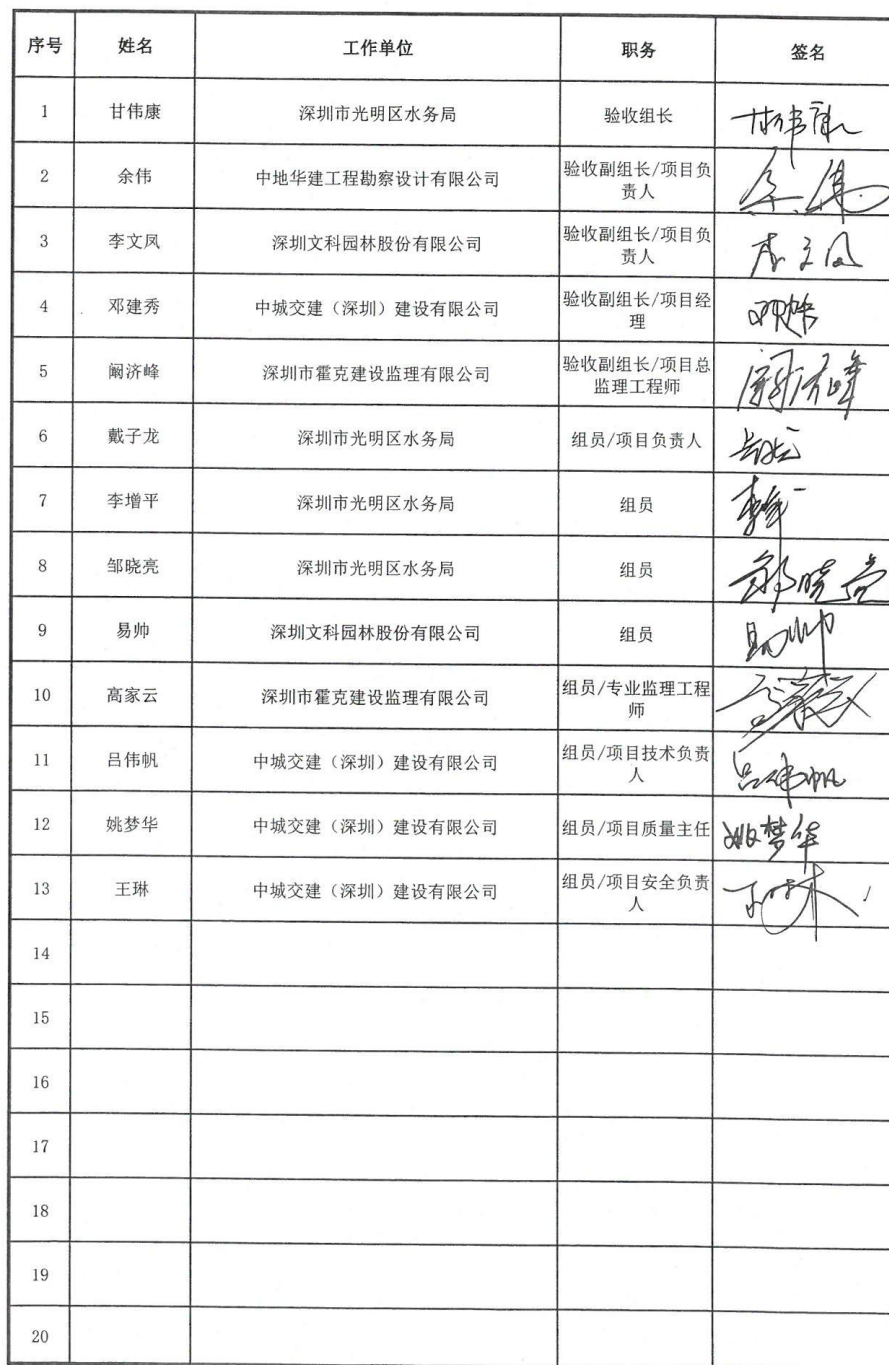 序号 姓名 工作单位 职务 签名
1 甘伟康 深圳市光明区水务局 验收组长 甘伟康
2 余伟 中地华建工程勘察设计有限公司 验收副组长/项目负
责人 余伟
3 李文凤 深圳文科园林股份有限公司 验收副组长/项目负
责人 李文凤
4 邓建秀 中城交建（深圳）建设有限公司 验收副组长/项目经
理
5 阚济峰 深圳市霍克建设监理有限公司 验收副组长/项目总
监理工程师 阚济峰
6 戴子龙 深圳市光明区水务局 组员/项目负责人
7 李增平 深圳市光明区水务局 组员
8 邹晓亮 深圳市光明区水务局 组员 邹晓亮
9 易帅 深圳文科园林股份有限公司 组员 易帅
10 高家云 深圳市霍克建设监理有限公司 组员/专业监理工程
师
11 吕伟帆 中城交建（深圳）建设有限公司 组员/项目技术负责
人 吕伟帆
12 姚梦华 中城交建（深圳）建设有限公司 组员/项目质量主任 姚梦华
13 王琳 中城交建（深圳）建设有限公司 组员/项目安全负责
人 王琳
14
15
16
17
18
19
20